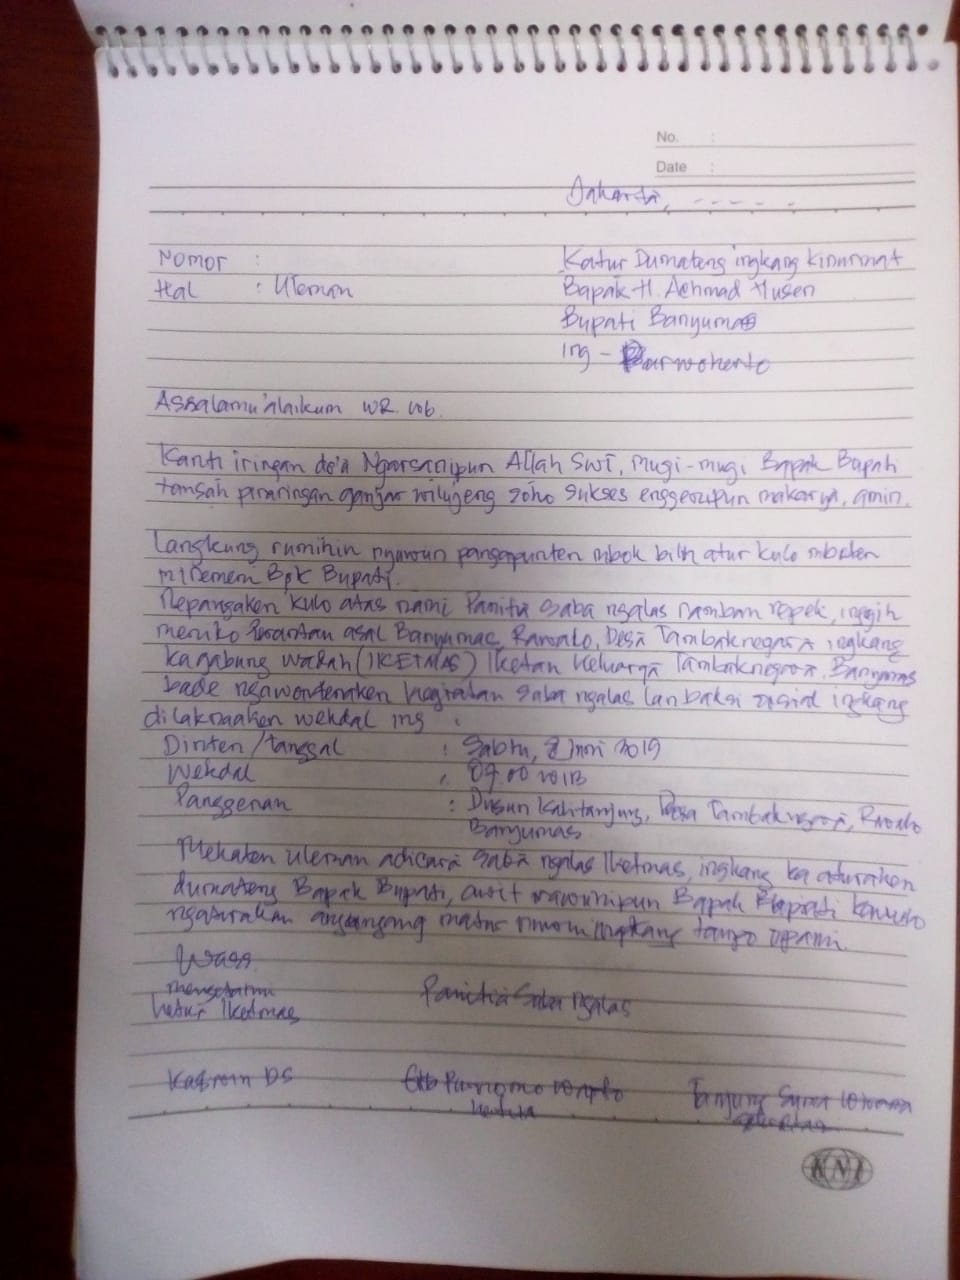 No. :
Date :
Jakarta, - - - - -
Nomor :
Hal : Uleman
Katur Dumateng ingkang kinurmat
Bapak H. Achmad Husen
Bupati Banyumas
ing - Purwokerto
Assalamu'alaikum WR. Wb.
Kanti iringan do'a Ngarsanipun Allah SWT, mugi-mugi Bapak Bupati
tansah pinaringan ganjar wilujeng soho sukses makarya, amin.
Langkung rumihin nyuwun pangapunten mbok bilih atur kulo mboten
Bpk Bupati.
Nepangaken kulo atas nami Panitia Saba ngalas ramban repek, inggih
meniko asal Banyumas, Rawalo, Desa Tambaknegara ingkang
kagabung wadah (IKETMAS) Iketan Keluarga Tambaknegara. Banyumas
bade kegiatan Saba ngalas lan baksi sosial ingkang
wekdal ing :
Dinten/tanggal : Sabtu, Juni 2019
Wekdal : 09.00 WIB
Panggenan : Dusun Kalitanjung, Desa Tambaknegara, Rawalo
Banyumas
Mekaten uleman adicara Saba ngalas Iketmas, ingkang ka aturaken
dumateng Bapak Bupati, awit rawuhipun Bapak Bupati
ngaturaken matur nuwun ingkang tanpo upami
Wass
mengetahui
Ketua Iketmas
Panitia Saba Ngalas
Kasrom DS
Purnomo
Ketua
Tanjung
KNI